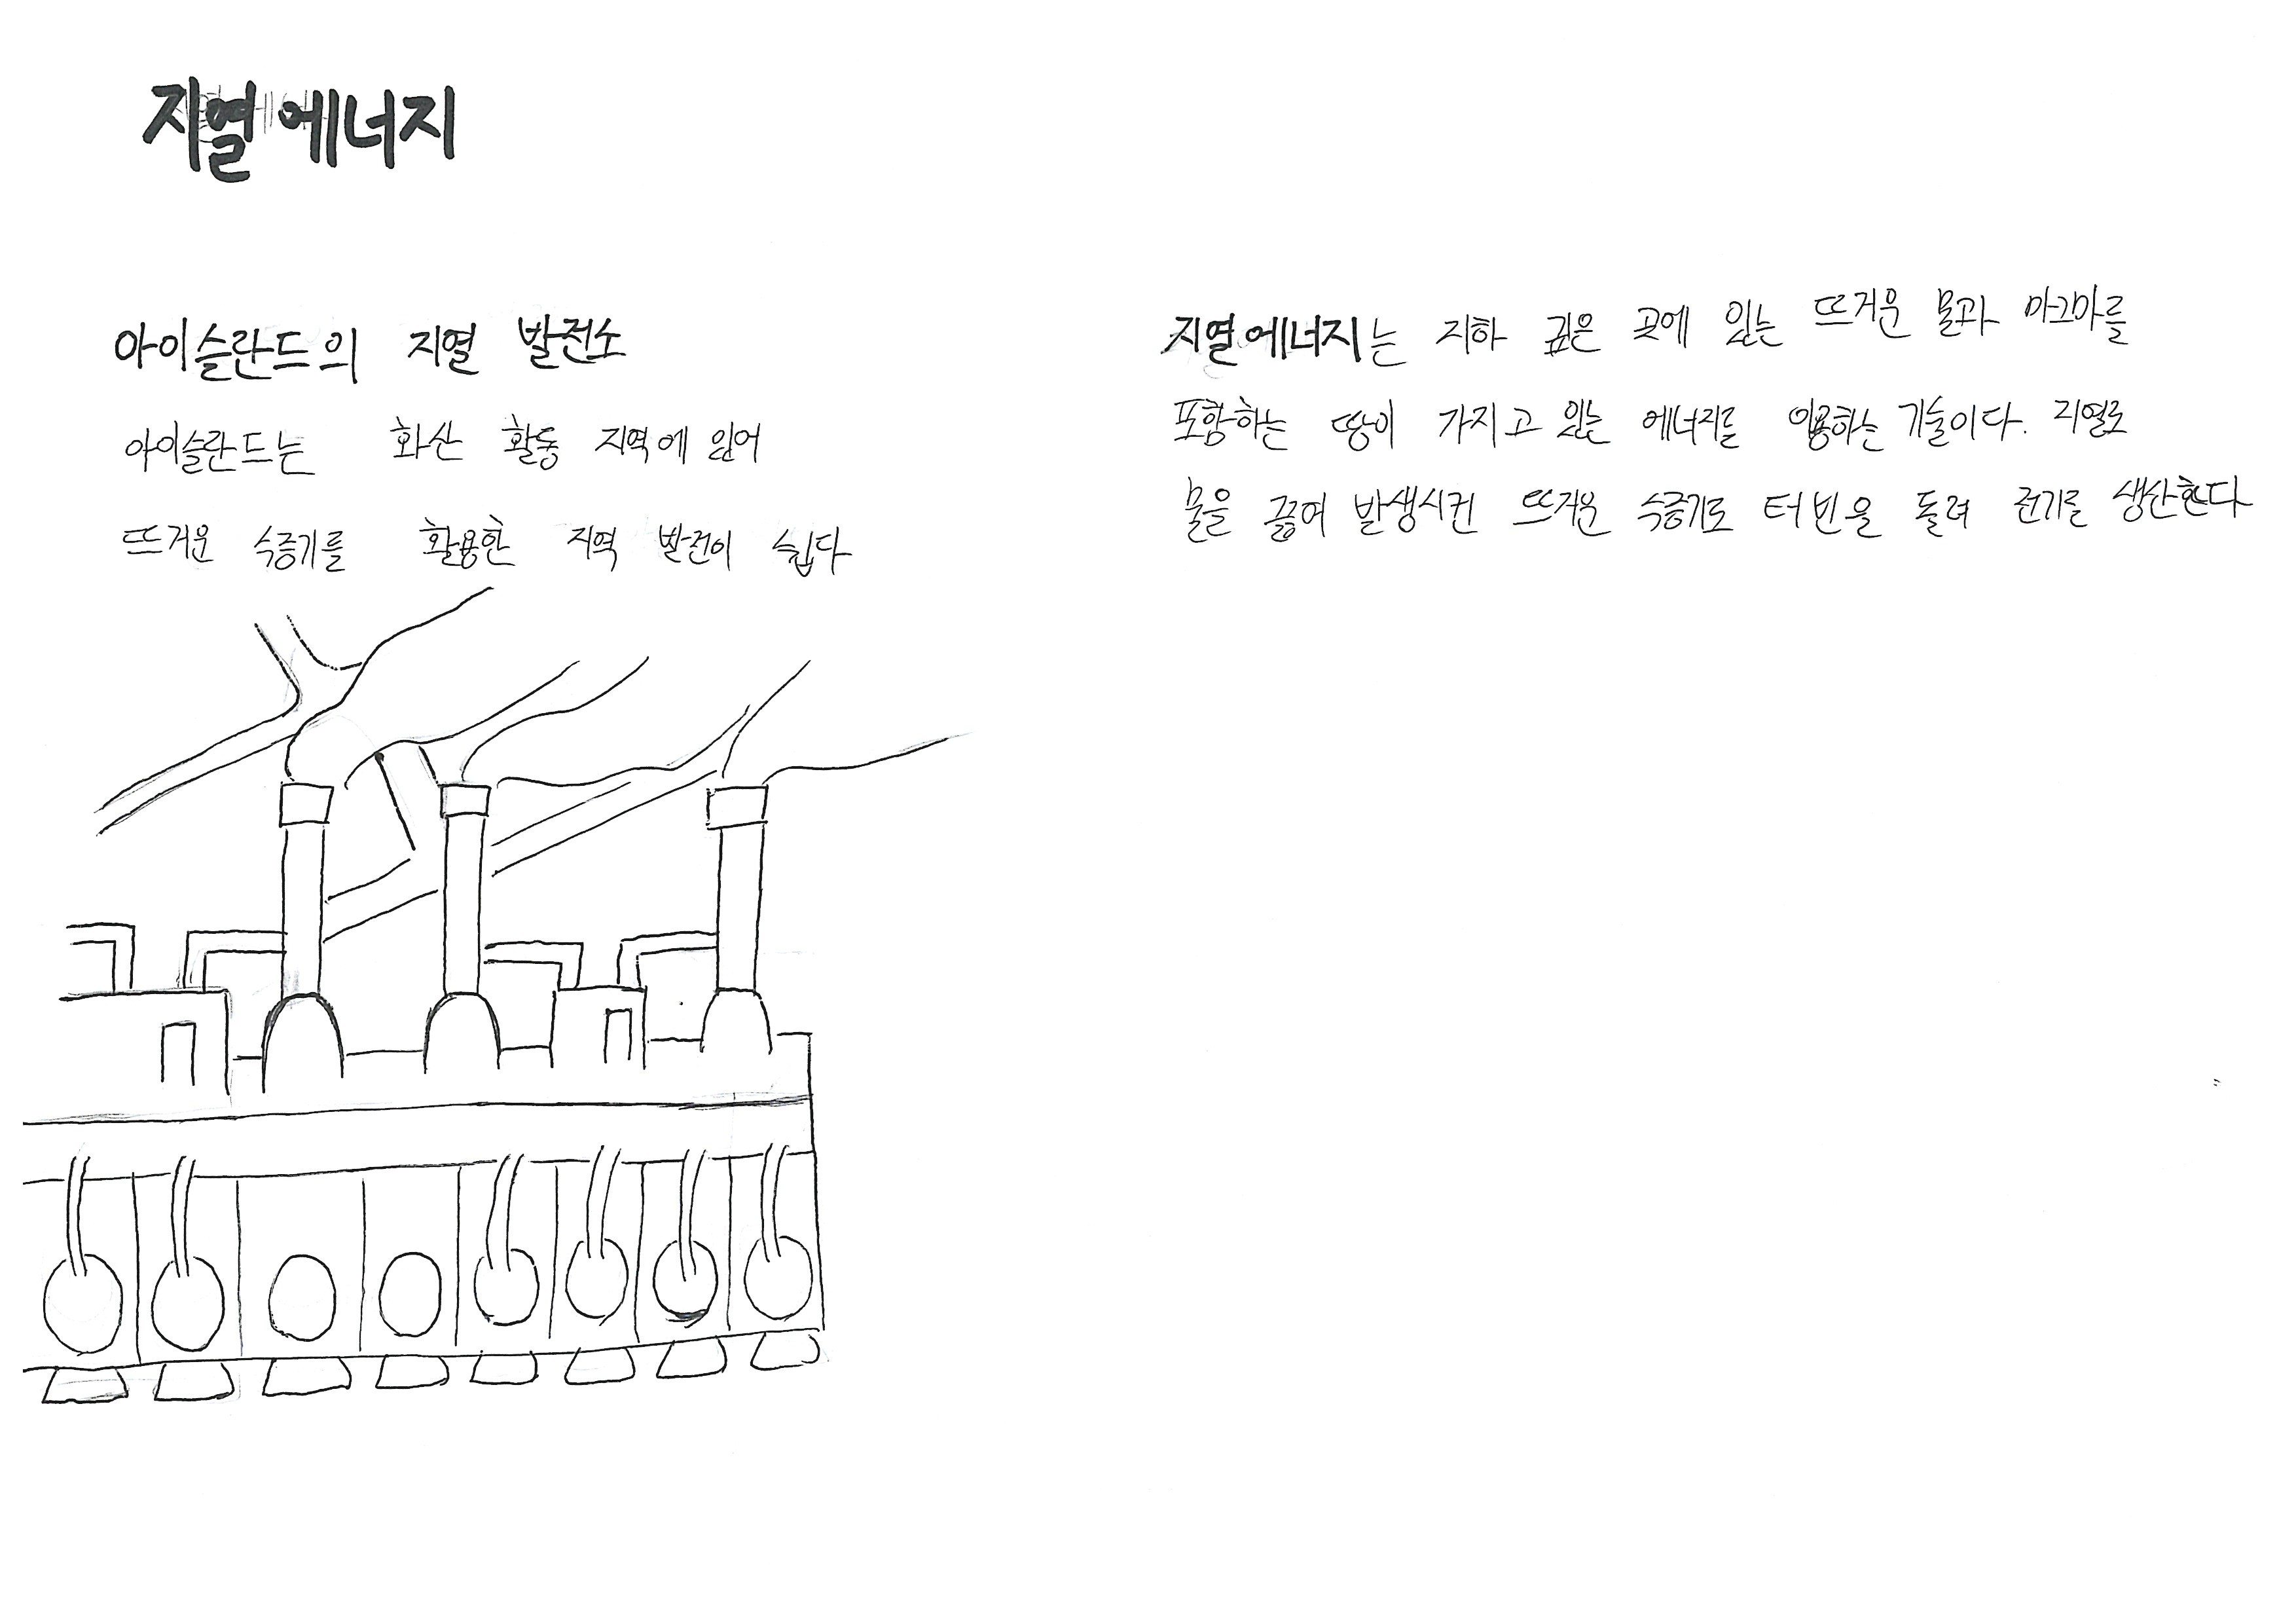 지열에너지
아이슬란드의 지열 발전소
아이슬란드는 화산 활동 지역에 있어
뜨거운 수증기를 활용한 지역 발전이 쉽다
지열에너지는 지하 깊은 곳에 있는 뜨거운 물과 마그마를
포함하는 땅이 가지고 있는 에너지를 이용하는 기술이다. 지열로
물을 끓여 발생시킨 뜨거운 수증기로 터빈을 돌려 전기를 생산한다